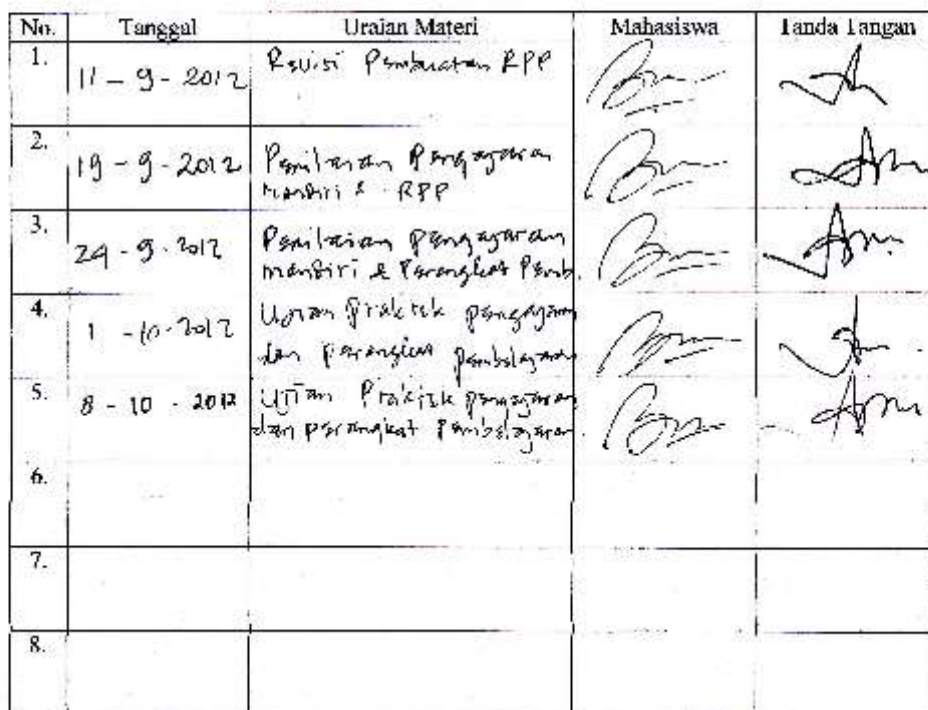 No. Tanggal Uraian Materi Mahasiswa Tanda Tangan
1. 11 - 9 - 2012 Revisi Pembuatan RPP
2. 19 - 9 - 2012 Penilaian Pengajaran
Mandiri & RPP
3. 24 - 9 - 2012 Penilaian pengajaran
mandiri & Perangkat Pemb.
4. 1 - 10 - 2012 Ujian Praktik pengajaran
dan perangkat pembelajaran
5. 8 - 10 - 2012 Ujian Praktik pengajaran
dan perangkat Pembelajaran.
6.
7.
8.